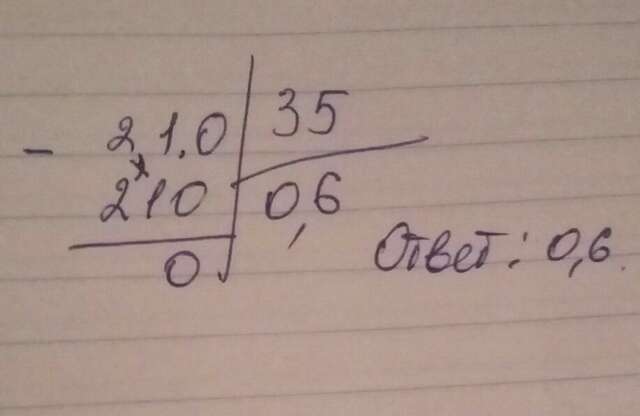 - 21.0 35
210 0,6
0
Ответ: 0,6